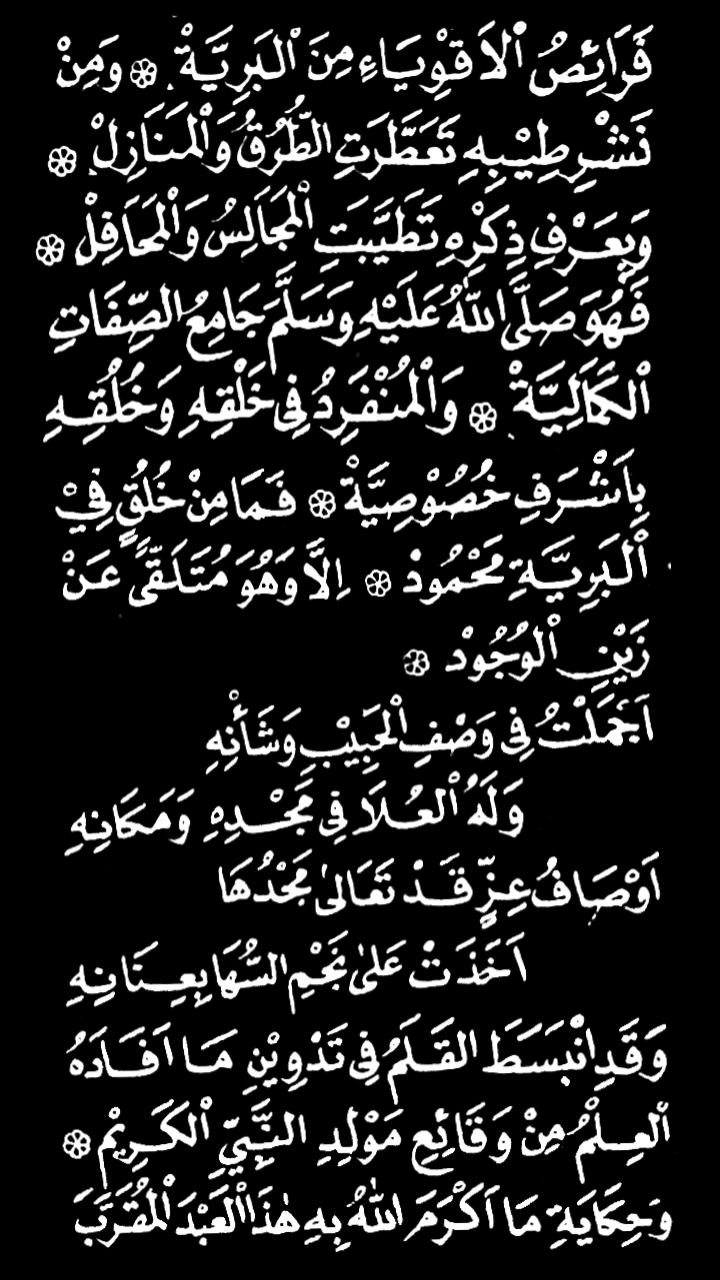 فَرَائِصُ ٱلْاَقْوِيَاءِ مِنَ ٱلْبَرِيَّةْ ۞ وَمِنْ
نَشْرِ طِيْبِهِ تَعَطَّرَتِ الطُّرُقُ وَٱلْمَنَازِلْ ۞
وَبِعَرْفِ ذِكْرِهِ تَطَيَّبَتِ ٱلْمَجَالِسُ وَٱلْمَحَافِلْ ۞
فَهُوَ صَلَّى اللّٰهُ عَلَيْهِ وَسَلَّمَ جَامِعُ الصِّفَاتِ
ٱلْكَمَالِيَّةْ ۞ وَٱلْمُنْفَرِدُ فِى خَلْقِهِ وَخُلُقِهِ
بِاَشْرَفِ خُصُوْصِيَّةْ ۞ فَمَا مِنْ خُلُقٍ فِيْ
ٱلْبَرِيَّةِ مَحْمُودْ ۞ اِلَّا وَهُوَ مُتَلَقًّى عَنْ
زَيْنِ ٱلْوُجُوْدْ ۞
اَجْمَلْتُ فِى وَصْفِ ٱلْحَبِيْبِ وَشَأْنِهِ
وَلَهُ ٱلْعُلَا فِى مَجْدِهِ وَمَكَانِهِ
اَوْصَافُ عِزٍّ قَدْ تَعَالىٰ مَجْدُهَا
اَخَذَتْ عَلىٰ نَجْمِ السُّهَا بِعِنَانِهِ
وَقَدِ انْبَسَطَ القَلَمُ فِى تَدْوِيْنِ مَا اَفَادَهُ
ٱلْعِلْمُ مِنْ وَقَائِعِ مَوْلِدِ النَّبِيِّ ٱلْكَرِيْمْ ۞
وَحِكَايَةِ مَا اَكْرَمَ اللّٰهُ بِهِ هٰذَا ٱلْعَبْدَ ٱلْمُقَرَّبَ